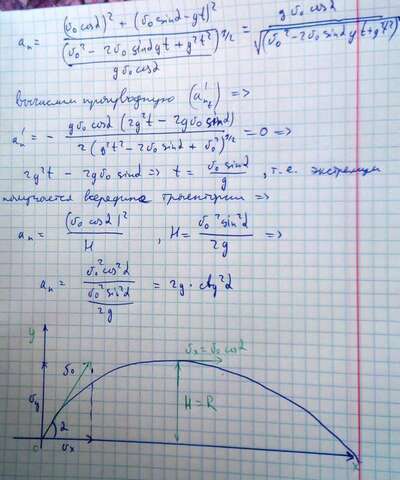 aₙ = ((v₀cosα)² + (v₀sinα - gt)²) / ((v₀² - 2v₀sinαgt + g²t²)^3/2 / (gv₀cosα)) = gv₀cosα / √(v₀² - 2v₀sinαgt + g²t²)
вычислим производную (aₙₜ') =>
aₙ' = - gv₀cosα(2g²t - 2gv₀sinα) / 2(g²t² - 2v₀sinα + v₀²)^3/2 = 0 =>
2g²t - 2gv₀sinα => t = v₀sinα / g, т.е. экстремум
получается в середине траектории =>
aₙ = (v₀cosα)² / H, H = v₀²sin²α / 2g =>
aₙ = v₀²cos²α / (v₀²sin²α / 2g) = 2g · ctg²α
y
vₓ = v₀cosα
v₀
vᵧ
H = R
α
0
vₓ
x